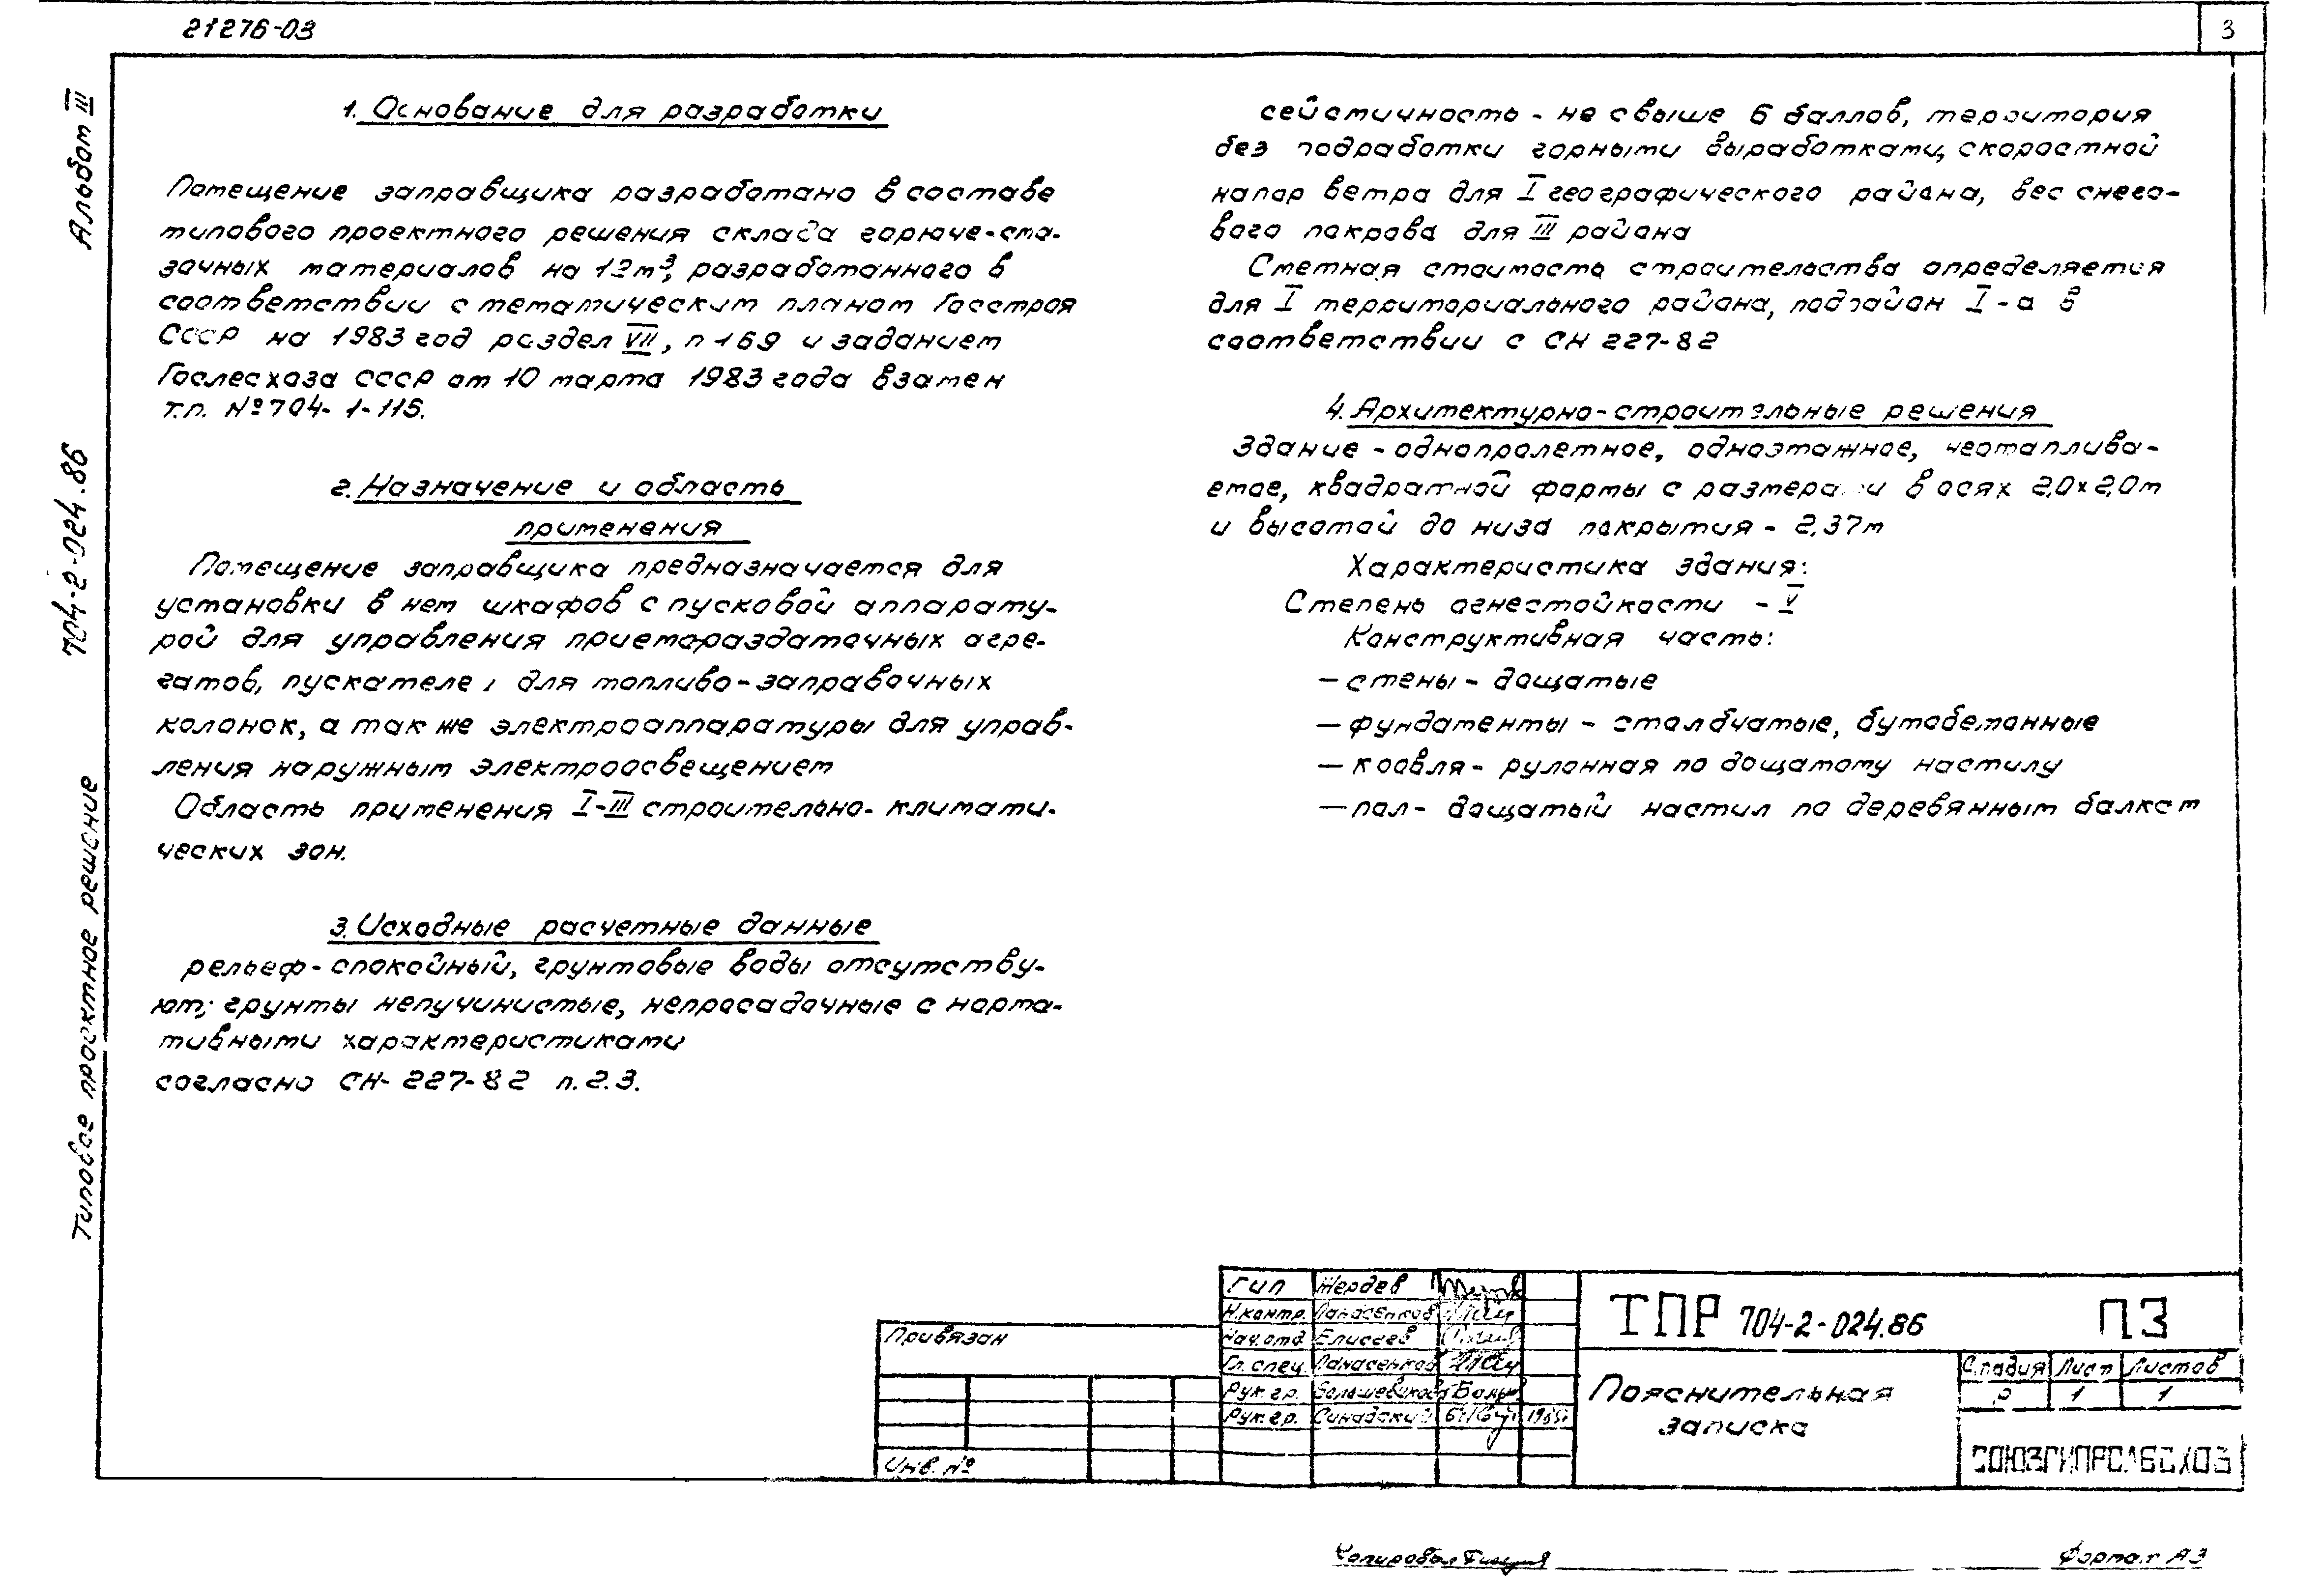 21276-03
3
Альбом III
704-2-024.86
Типовое проектное решение
1. Основание для разработки
Помещение заправщика разработано в составе
типового проектного решения склада горюче-сма-
зочных материалов на 12м³, разработанного в
соответствии с тематическим планом Госстроя
СССР на 1983 год раздел VII, п 169 и заданием
Гослесхоза СССР от 10 марта 1983 года взамен
т.п. №704-1-115.
2. Назначение и область
применения
Помещение заправщика предназначается для
установки в нем шкафов с пусковой аппарату-
рой для управления приемораздаточных агре-
гатов, пускателей для топливо-заправочных
колонок, а так же электроаппаратуры для управ-
ления наружным электроосвещением
Область применения I-III строительно-климати-
ческих зон.
3. Исходные расчетные данные
рельеф-спокойный, грунтовые воды отсутству-
ют; грунты непучинистые, непросадочные с норма-
тивными характеристиками
согласно СН-227-82 п.2.3.
сейсмичность - не свыше 6 баллов, территория
без подработки горными выработками, скоростной
напор ветра для I географического района, вес снего-
вого покрова для III района
Сметная стоимость строительства определяется
для I территориального района, подрайон I-а в
соответствии с СН 227-82
4. Архитектурно-строительные решения
Здание - однопролетное, одноэтажное, неотаплива-
емое, квадратной формы с размерами в осях 2,0×2,0м
и высотой до низа покрытия - 2,37м
Характеристика здания:
Степень огнестойкости - V
Конструктивная часть:
— стены - дощатые
— фундаменты - столбчатые, бутобетонные
— кровля - рулонная по дощатому настилу
— пол - дощатый настил по деревянным балкам
Привязан
Инв. №
ГИП Жердев
Н.контр. Панасенков
Нач.отд Елисеев
Гл.спец. Панасенков
Рук.гр. Большевикова
Рук.гр. Синадский 1985г
ТПР 704-2-024.86 ПЗ
Пояснительная
записка
Стадия Лист Листов
Р 1 1
СОЮЗГИПРОЛЕСХОЗ
Копировал
Формат А3